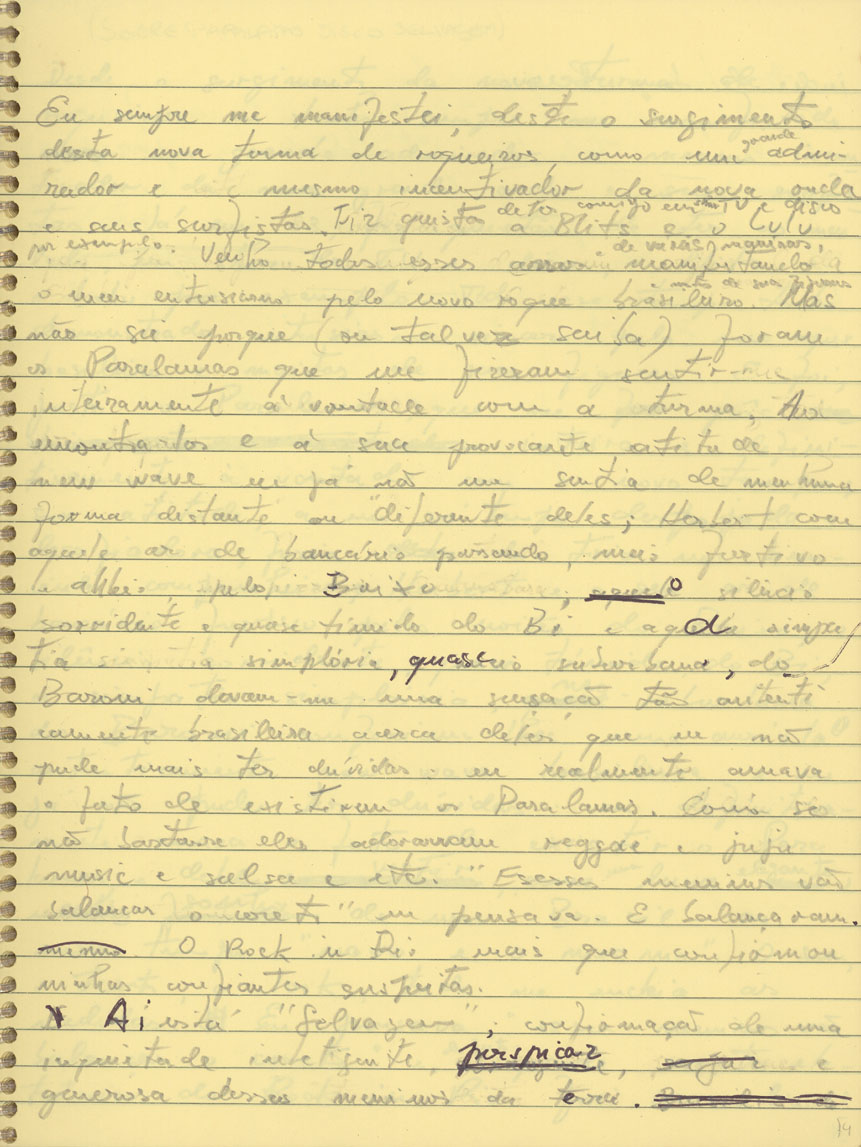 (SOBRE PARALAMAS DISCO SELVAGEM)
Eu sempre me manifestei, desde o surgimento
desta nova turma de roqueiros, como um grande admi-
rador e até mesmo incentivador da nova onda
e seus surfistas. Fiz questão de ter comigo em TV e disco a Blitz e o Lulu
por exemplo. Venho todos esses anos de várias maneiras, manifestando
o meu entusiasmo pelo novo roque brasileiro. Mas
não sei porque (ou talvez saiba) foram
os Paralamas que me fizeram sentir-me
inteiramente à vontade com a turma. Ao
e à sua provocante atitude
new wave eu já não me sentia de nenhuma
forma distante ou "diferente" deles; Herbert com
aquele ar de bancário passando, meio furtivo
e alheio, pelo Baixo, o silêncio
sorridente e quase tímido do Bi e a simpa
tia simplória, quase suburbana, do
Baroni davam-me uma sensação tão autenti
camente brasileira acerca deles que eu não
pude mais ter dúvidas: eu realmente amava
o fato de existirem os Paralamas. Como se
não bastasse eles adoravam reggae e juju
music e salsa e etc. "Esses meninos vão
balançar o coreto" eu pensava. E balançaram.
mesmo. O Rock in Rio mais que confirmou
minhas confiantes suspeitas.
Aí está "Selvagem", confirmação de uma
inquietude inteligente, perspicaz e
generosa desses meninos da terra.
14